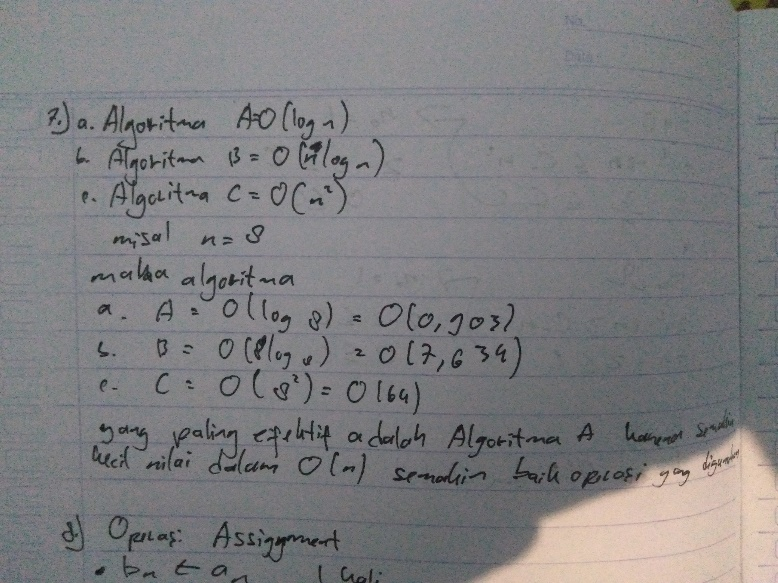 No.
Date
7.) a. Algoritma A=O(log n)
b. Algoritma B = O(n log n)
c. Algoritma C = O(n²)
misal n = 8
maka algoritma
a. A = O(log 8) = O(0,903)
b. B = O(8 log 8) = O(7,634)
c. C = O(8²) = O(64)
yang paling efektif adalah Algoritma A karena semakin
kecil nilai dalam O(n) semakin baik operasi yang digunakan
8) Operasi Assignment
• bn ← an 1 kali